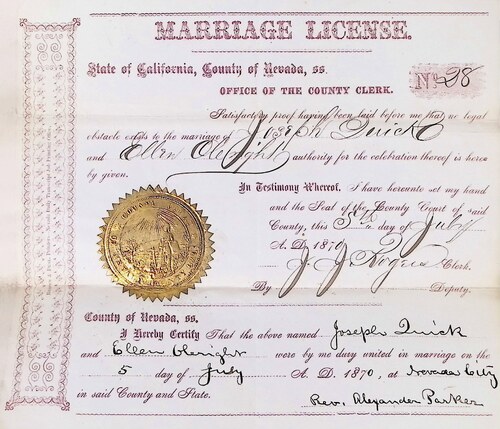 MARRIAGE LICENSE.
State of California, County of Nevada, ss.
OFFICE OF THE COUNTY CLERK.
No 28
Satisfactory proof having been laid before me that no legal
obstacle exists to the marriage of Joseph Quick
and Ellen authority for the celebration thereof is hereby given.
In Testimony Whereof, I have hereunto set my hand
and the Seal of the County Court of said
County, this 5th day of July
A. D. 1870
J. J. Rogers Clerk.
By Deputy.
County of Nevada, ss.
I Hereby Certify That the above named Joseph Quick
and Ellen were by me duly united in marriage on the
5 day of July A. D. 1870, at Nevada City
in said County and State.
Rev. Alexander Parker